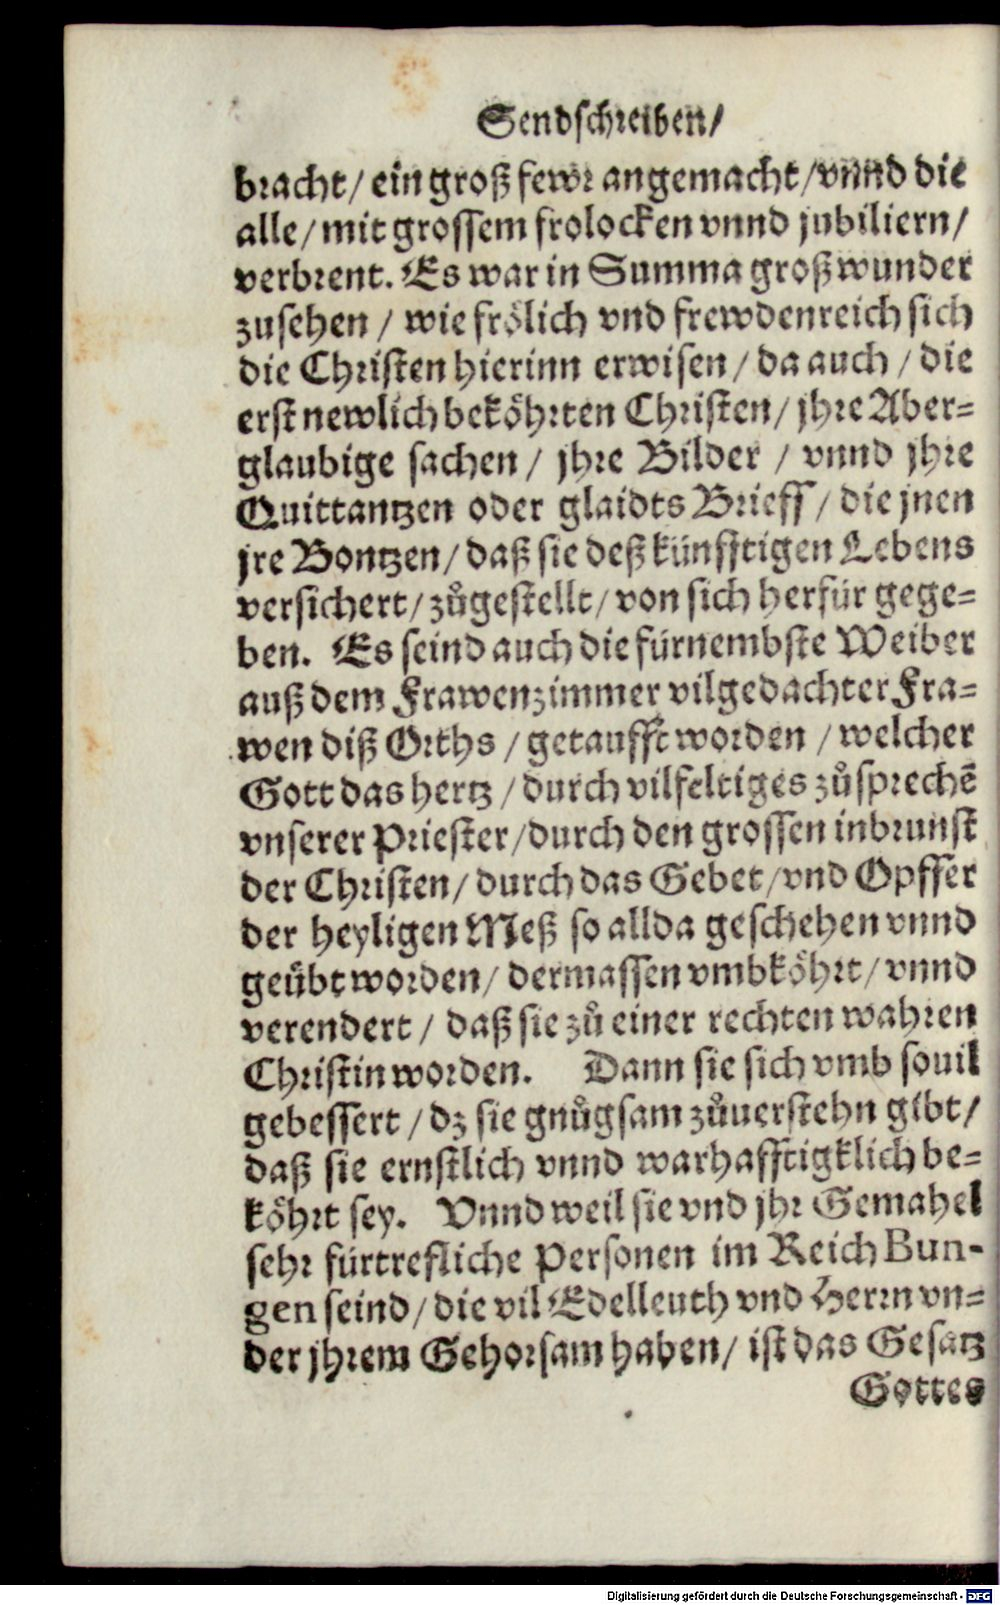 Sendschreiben/
bracht/ ein groß fewr angemacht/ vnnd die
alle/ mit grossem frolocken vnnd jubiliern/
verbrent. Es war in Summa groß wunder
zusehen / wie frölich vnd frewdenreich sich
die Christen hierinn erwisen / da auch / die
erst newlich beköhrten Christen/ jhre Aber-
glaubige sachen / jhre Bilder / vnnd jhre
Quittantzen oder glaidts Brieff / die jnen
jre Bontzen/ daß sie deß künfftigen Lebens
versichert/ zůgestellt/ von sich herfür gege-
ben. Es seind auch die fürnembste Weiber
auß dem Frawenzimmer vilgedachter Fra-
wen diß Orths / getaufft worden / welcher
Gott das hertz / durch vilfeltiges zůsprechē
vnserer Priester/ durch den grossen inbrunst
der Christen/ durch das Gebet/ vnd Opffer
der heyligen Meß so allda geschehen vnnd
geübt worden/ dermassen vmbköhrt/ vnnd
verendert / daß sie zů einer rechten wahren
Christin worden. Dann sie sich vmb souil
gebessert / dz sie gnůgsam zůuerstehn gibt/
daß sie ernstlich vnnd warhafftigklich be-
köhrt sey. Vnnd weil sie vnd jhr Gemahel
sehr fürtrefliche Personen im Reich Bun-
gen seind/ die vil Edelleuth vnd Herrn vn-
der jhrem Gehorsam haben/ ist das Gesatz
Gottes
Digitalisierung gefördert durch die Deutsche Forschungsgemeinschaft - DFG